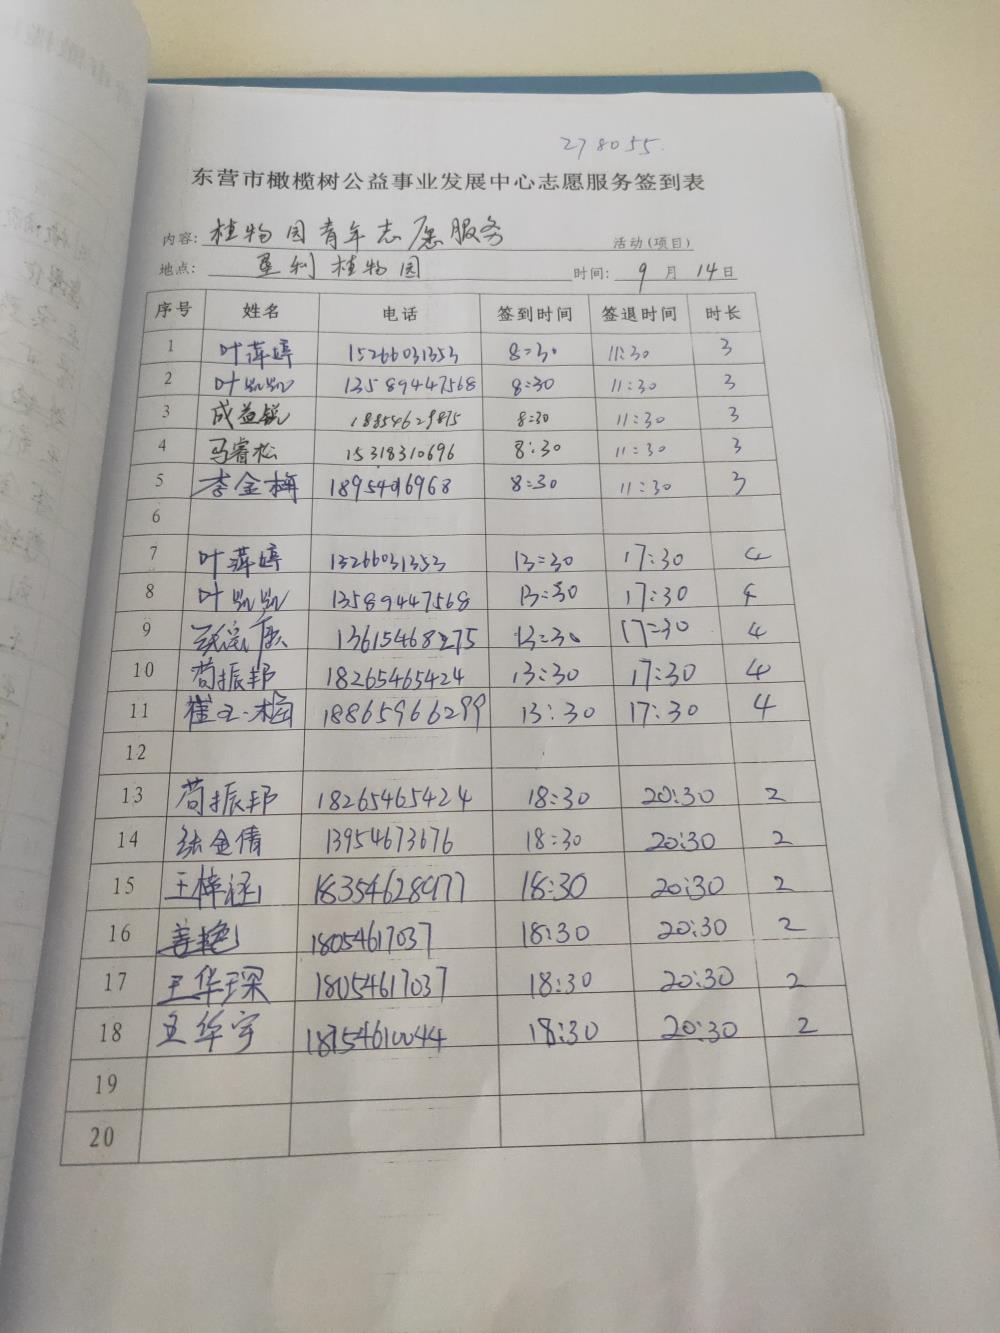 278055.
东营市橄榄树公益事业发展中心志愿服务签到表
内容: 植物园青年志愿服务 活动(项目)
地点: 垦利植物园 时间: 9月14日
序号 姓名 电话 签到时间 签退时间 时长
1 叶萍婷 15266031353 8:30 11:30 3
2 叶凯凯 13589447568 8:30 11:30 3
3 成益锐 18854629875 8:30 11:30 3
4 马睿松 15318310696 8:30 11:30 3
5 李金梅 8:30 11:30 3
6
7 叶萍婷 15266031353 13:30 17:30 4
8 叶凯凯 13589447568 13:30 17:30 4
9 13615468275 13:30 17:30 4
10 苟振邦 18265465424 13:30 17:30 4
11 18865966299 13:30 17:30 4
12
13 苟振邦 18265465424 18:30 20:30 2
14 张金倩 13954673676 18:30 20:30 2
15 王梓涵 18354628977 18:30 20:30 2
16 姜艳 18054617037 18:30 20:30 2
17 王华琛 18054617037 18:30 20:30 2
18 王华宇 18754610044 18:30 20:30 2
19
20